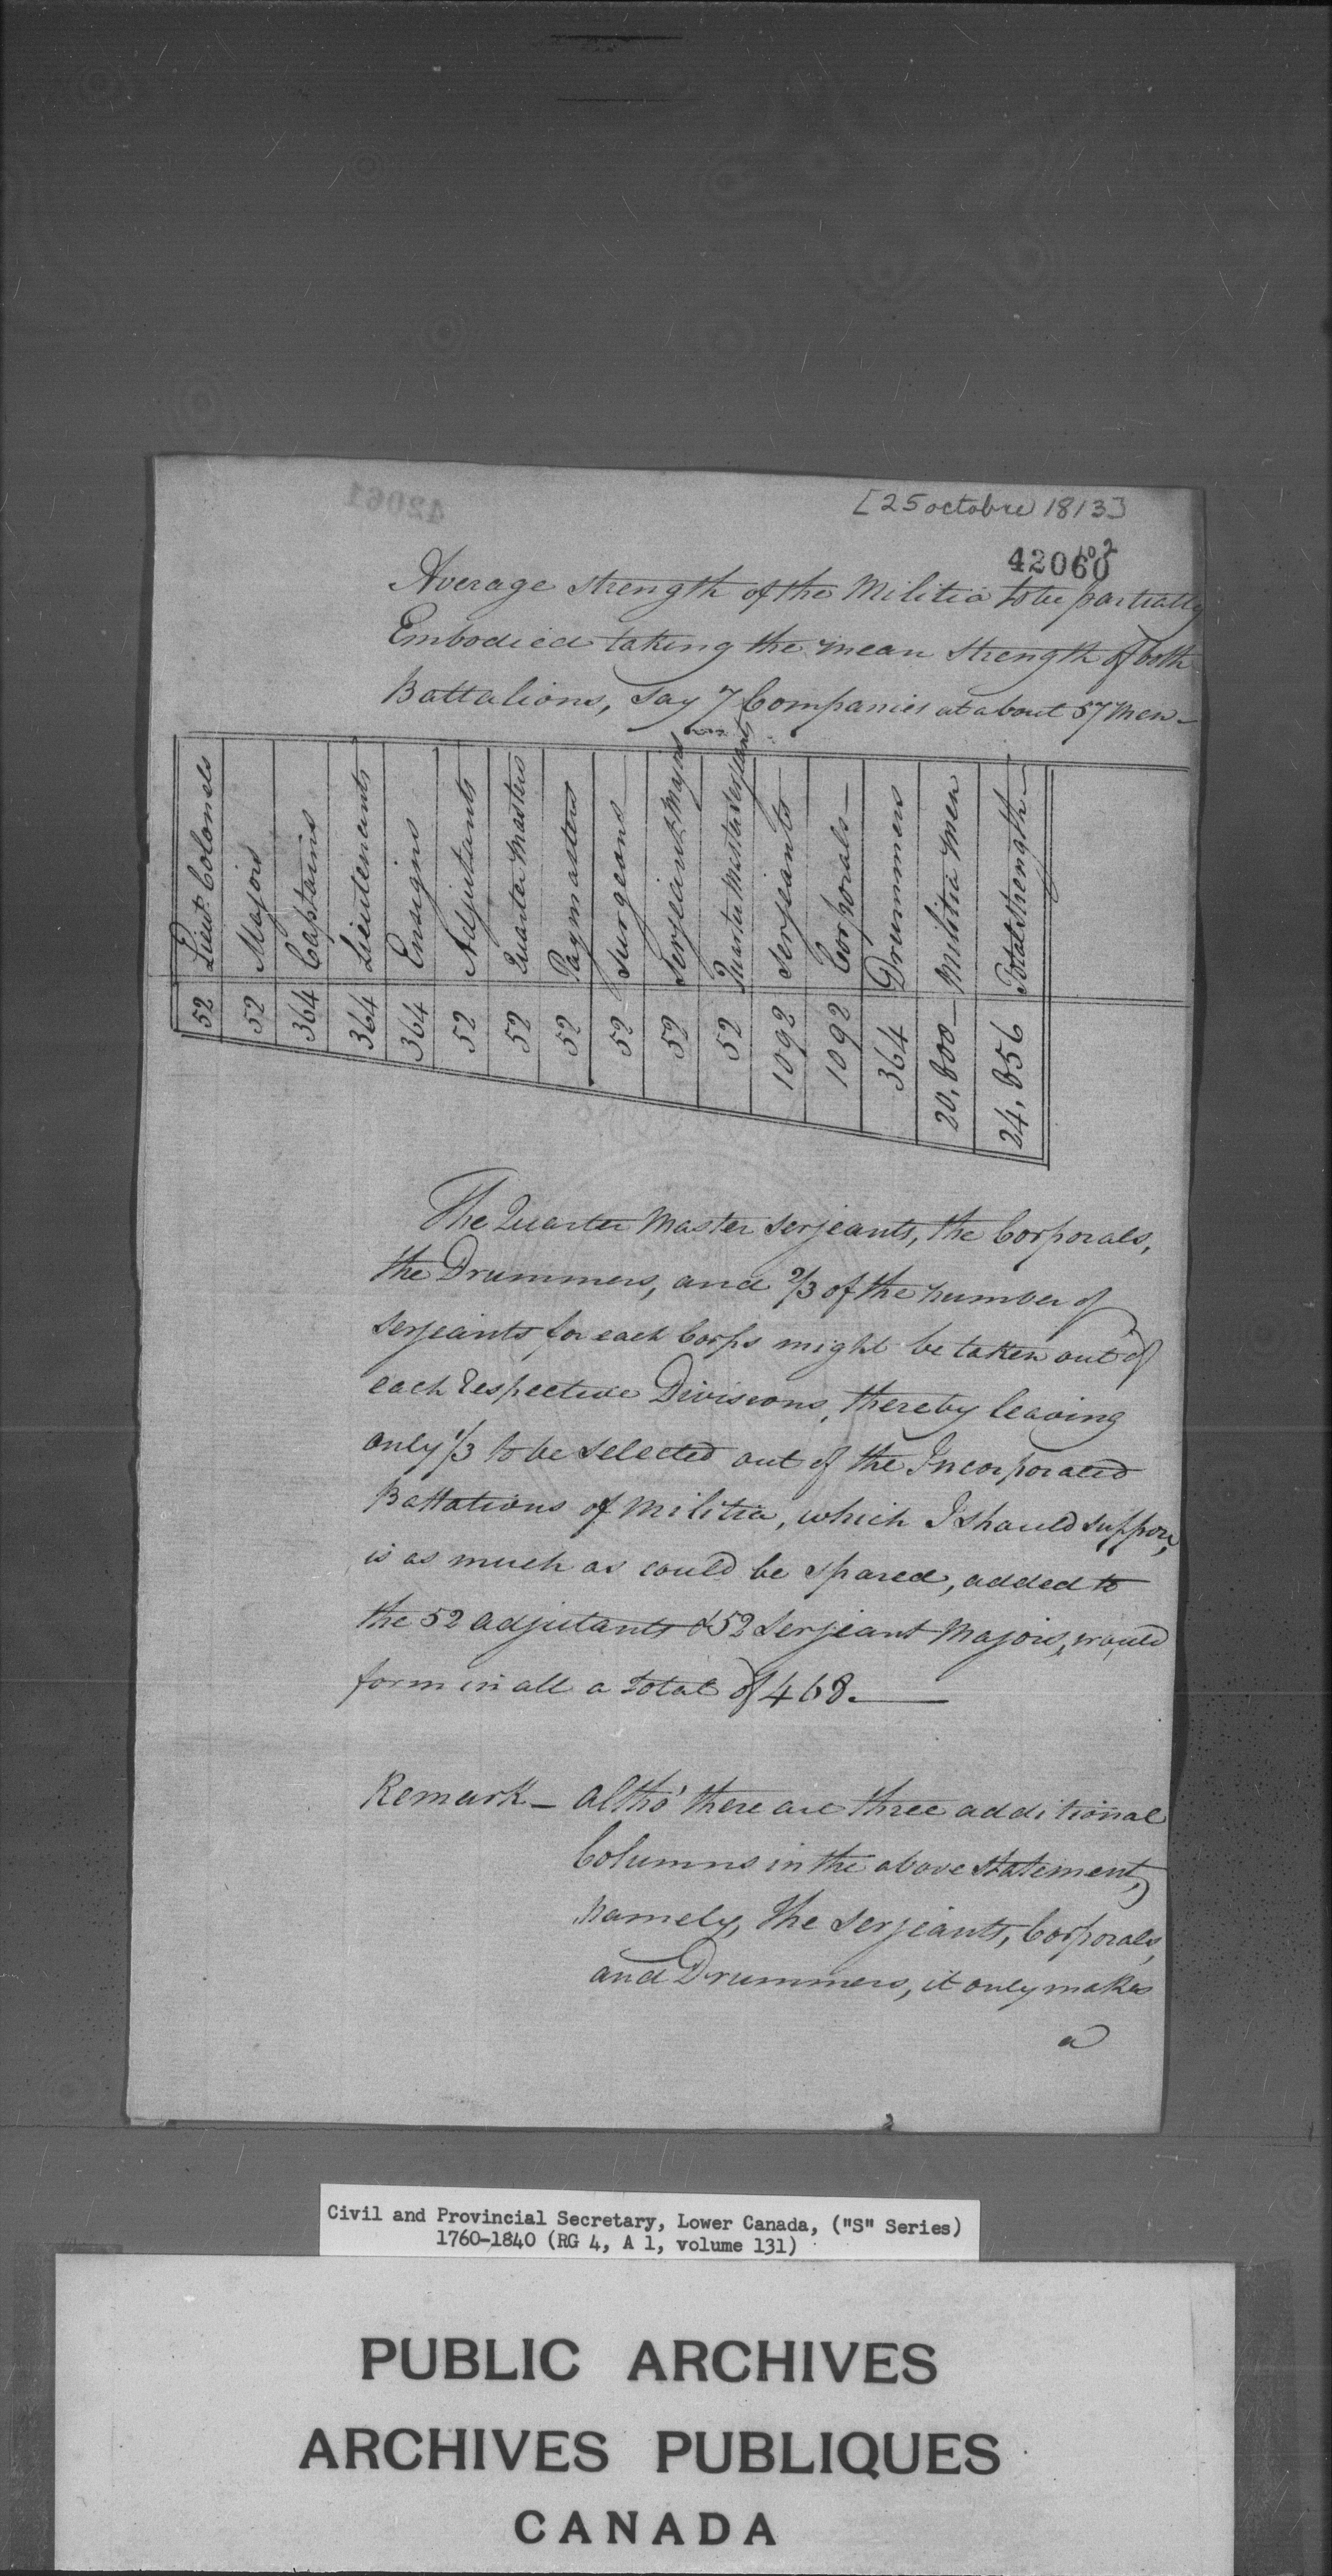 42061
[25 octobre 1813]
42060
102
Average strength of the Militia to be partially
Embodied taking the mean strength of both
Battalions, say 7 Companies at about 57 Men —
Lieut. Colonels
52
Majors
52
Captains
364
Lieutenants
364
Ensigns
364
Adjutants
52
Quarter Masters
52
Paymasters
52
Surgeons
52
Serjeant Majors
52
Quarter Master Serjeants
52
Serjeants
1092
Corporals —
1092
Drummers
364
Militia Men
20,800 —
Total strength —
24,856
The Quarter Master Serjeants, the Corporals,
the Drummers, and 2/3 of the number of
Serjeants for each Corps might be taken out of
each respective Divisions, thereby leaving
only 1/3 to be selected out of the Incorporated
Battations of Militia, which I should suppose,
is as much as could be spared, added to
the 52 Adjutants & 52 Serjeant Majors, would
form in all a total of 468. —
Remark — Altho' there are three additional
Columns in the above Statement,
namely, the Serjeants, Corporals,
and Drummers, it only makes
a
Civil and Provincial Secretary, Lower Canada, ("S" Series)
1760-1840 (RG 4, A 1, volume 131)
PUBLIC ARCHIVES
ARCHIVES PUBLIQUES
CANADA